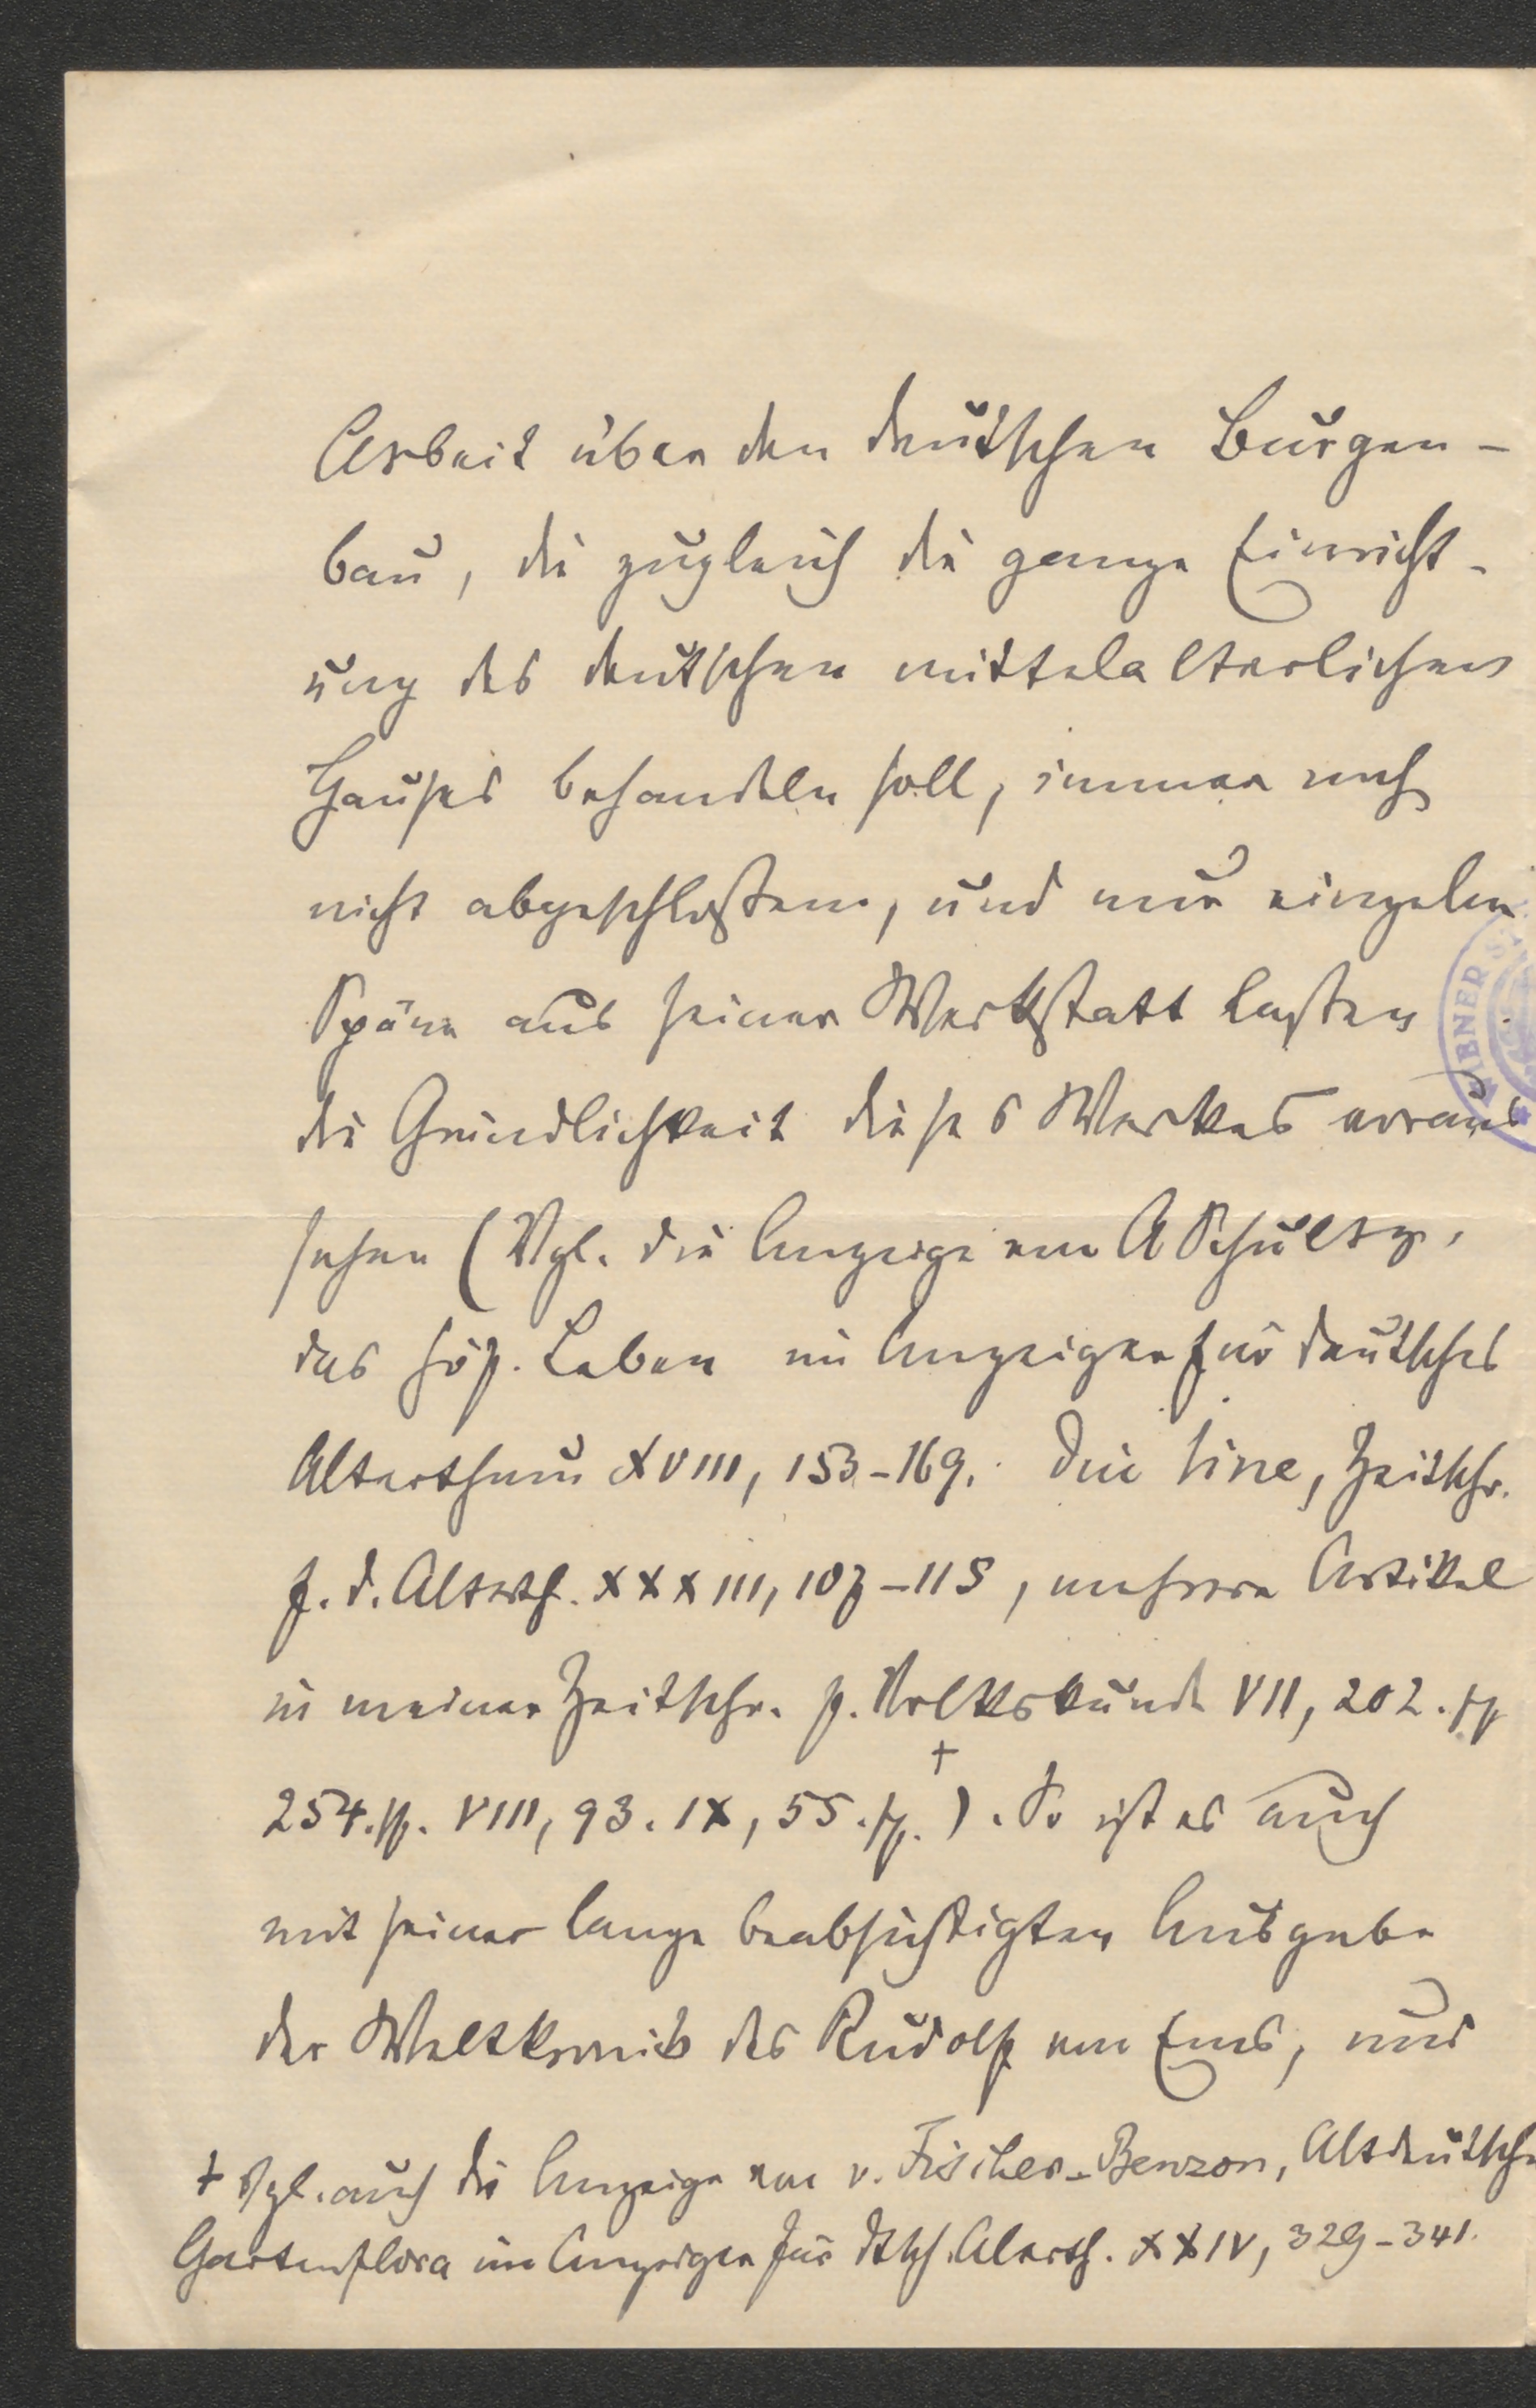 Arbeit über den deutschen Burgen-
bau, die zugleich die ganze Einricht-
ung des deutschen mittelalterlichen
Hauses behandeln soll, immer noch
nicht abgeschloßen, und nur einzelne
Späne aus seiner Werkstatt laßen
die Gründlichkeit dieses Werkes voraus
sehen (Vgl. die Anzeige von A Schultz,
das höf. Leben im Anzeiger für deutsches
Alterthum XVIII, 153-169. Diu line, Zeitschr.
f. d. Alterth. XXXIII, 107-115, mehrere Artikel
in meiner Zeitschr. f. Volkskunde VII, 202. ff
254. ff. VIII, 93. IX, 55. ff. †). So ist es auch
mit seiner lange beabsichtigten Ausgabe
der Weltkronik des Rudolf von Ems, und
† Vgl. auch die Anzeige von v. Fischer-Benzon, Altdeutsche
Gartenflora im Anzeiger für dtsch. Alterth. XXIV, 329-341.
IBNER